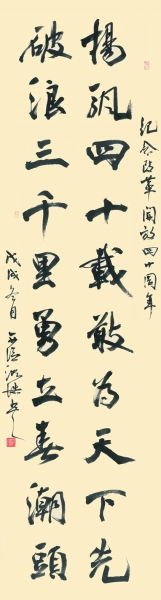 纪念改革開放四十周年
揚帆四十載敢為天下先
破浪三千里勇立春潮頭
戊戌冬月